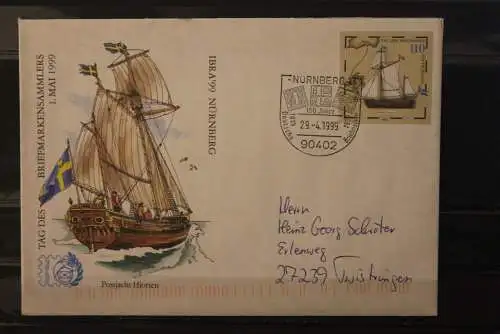 TAG DES BRIEFMARKENSAMMLERS
1. MAI 1999
IBRA'99 NÜRNBERG
Postjacht Hiorten
NÜRNBERG
29.-4.1999
90402
110
Herrn
Heinz Georg Schröter
Erlenweg
27239 Twistringen